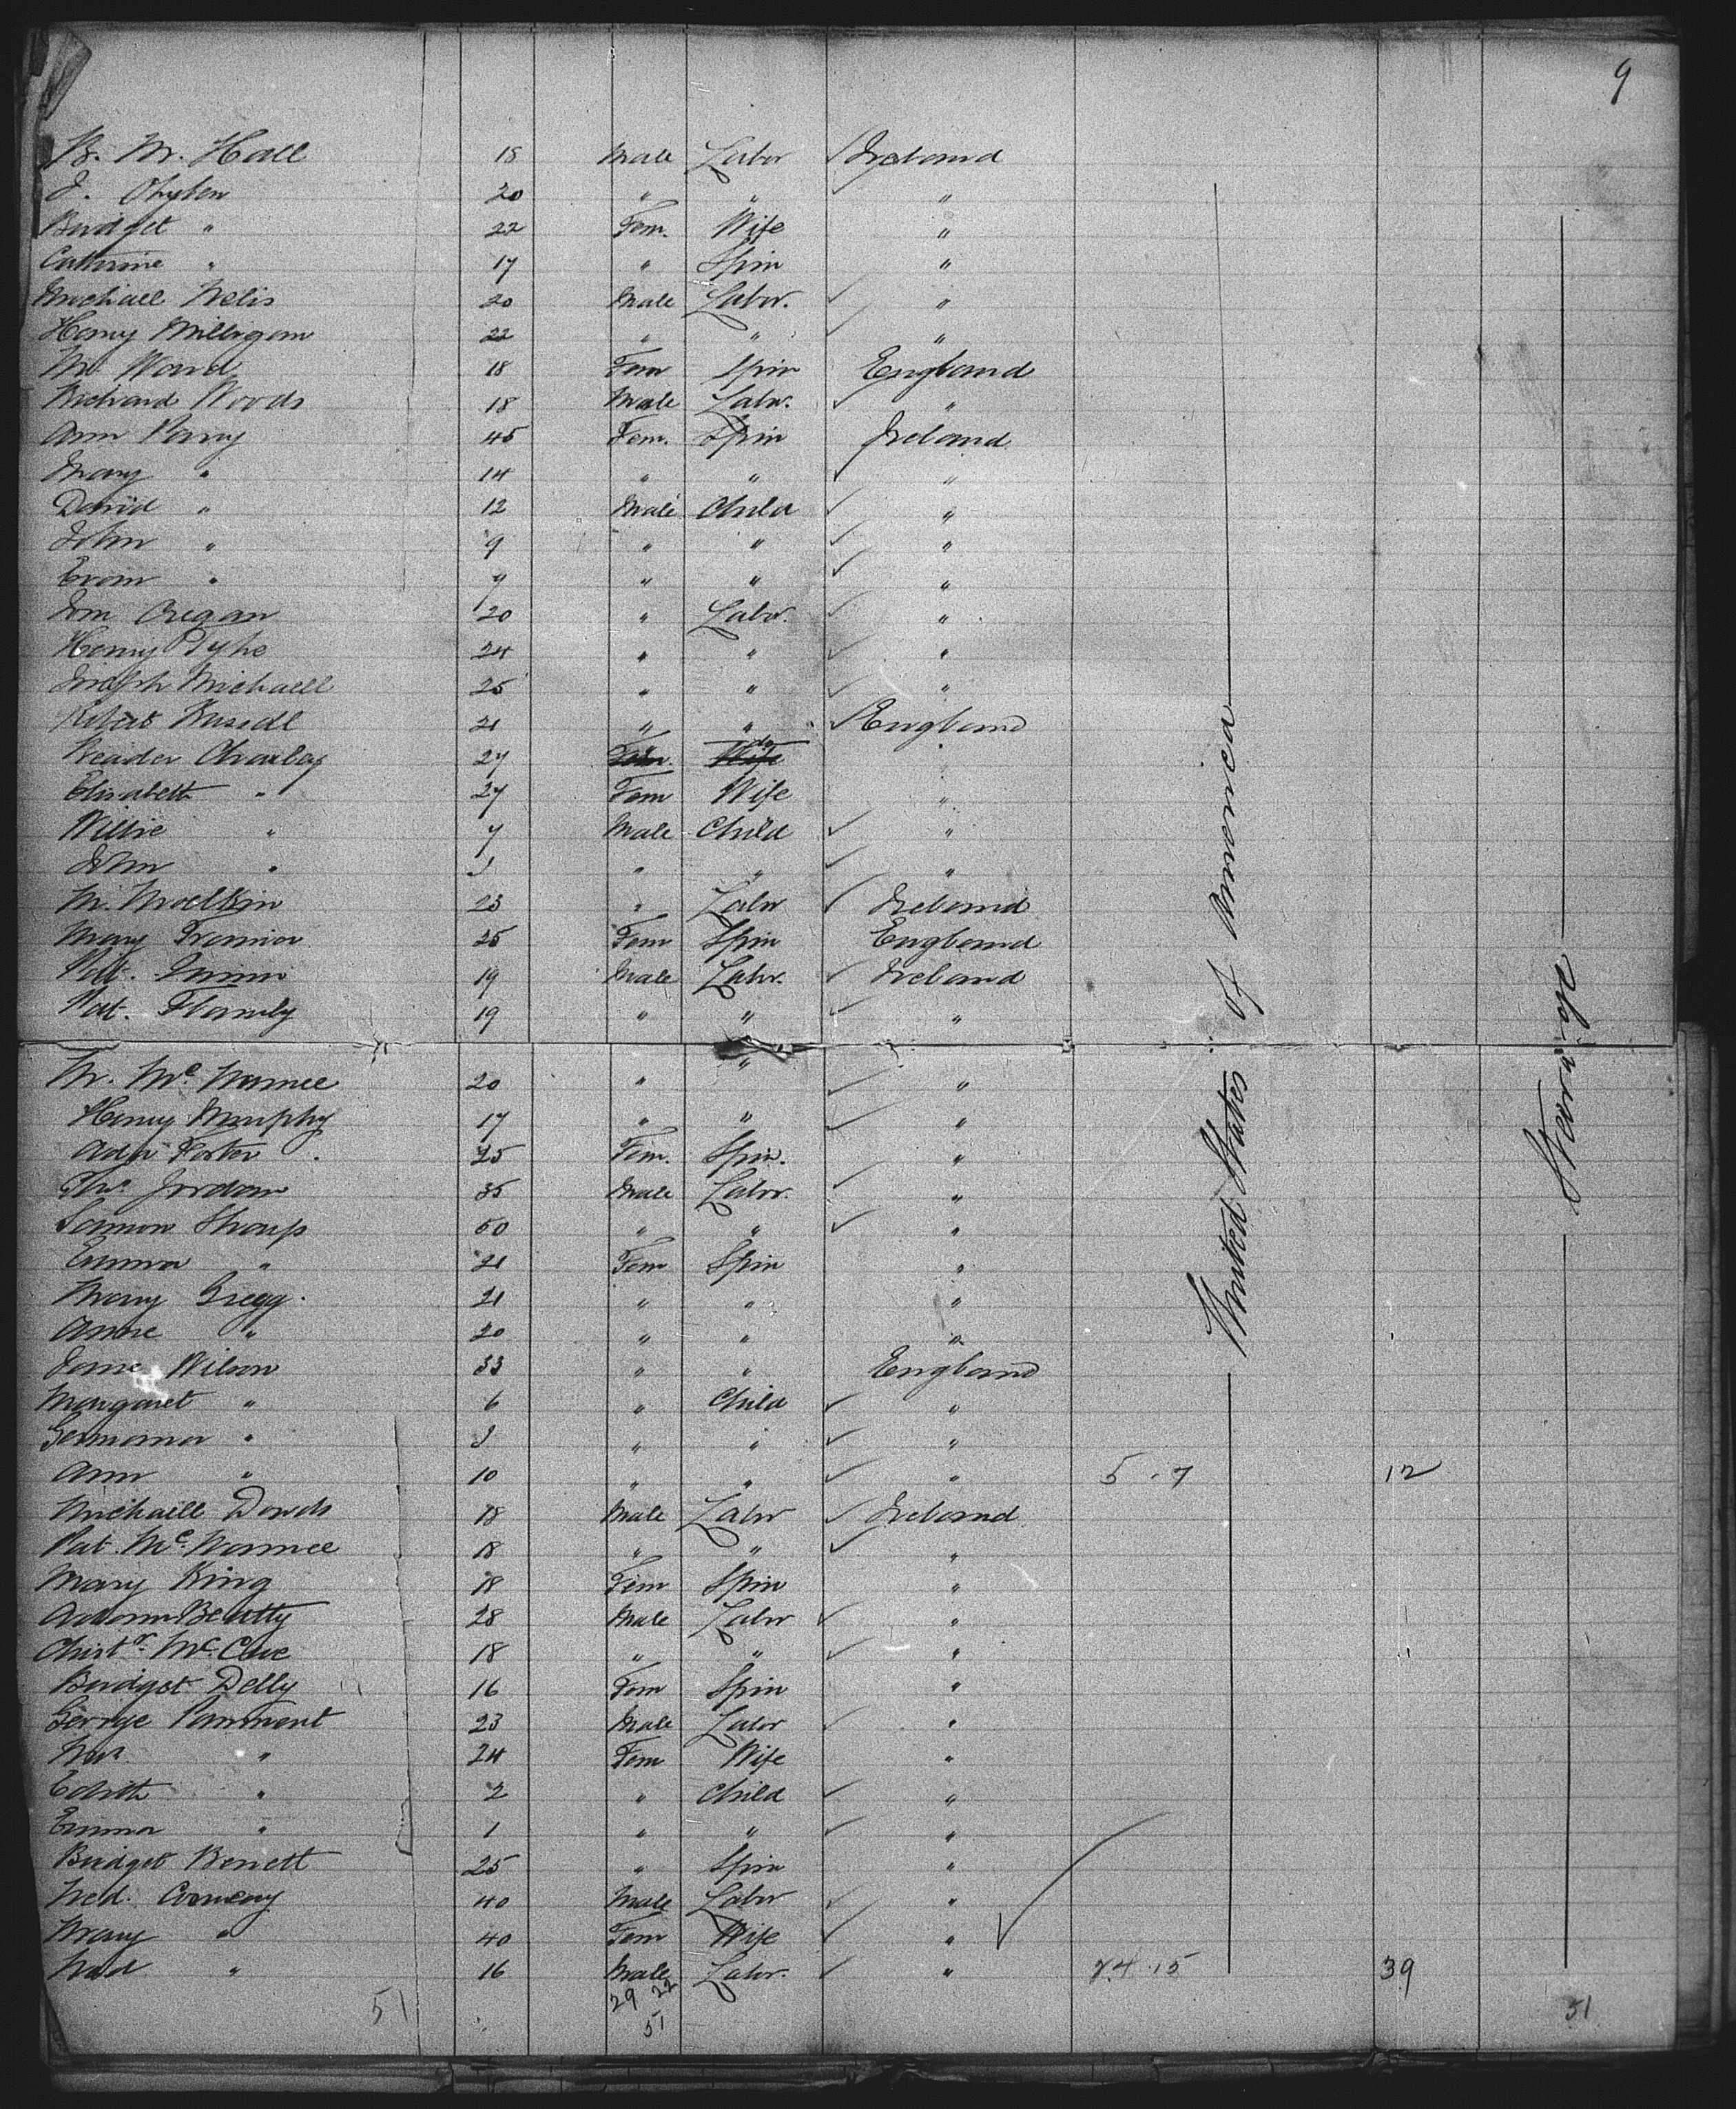 9
Hall 18 Male Labor ✓ Ireland
J. 20 " " "
Bridget " 22 Fem. Wife "
Catherine " 17 " Spin "
Michael Nelis 20 Male Labor. ✓ "
Henry Milligan 22 " " ✓ "
M. Ward 18 Fem Spin England
Richard Woods 18 Male Labr. ✓ "
Ann Parry 45 Fem. Spin Ireland
Mary " 14 " " ✓ "
David " 12 Male Child ✓ "
John " 9 " " ✓ "
Evan " 7 " " ✓ "
Oregan 20 " Labor. ✓ "
Henry 24 " " ✓ "
Joseph Michaell 25 " " ✓ "
Robert Russell 21 " " ✓ England
Charley 27 Fem. Wife do "
Elisabeth " 27 Fem Wife "
Willie " 7 Male Child ✓ "
John " " " ✓ "
M. 23 " Labor ✓ Ireland
Mary 25 Fem Spin England
Patt. Quinn 19 Male Labr. ✓ Ireland
Pat. 19 " " ✓ "
M. Mc Namee 20 " " ✓ "
Henry Murphy 17 " " ✓ "
Foster 25 Fem. Spin. "
Thos. Jordan 35 Male Labor. ✓ "
Sharp 50 " " ✓ "
Emma " 21 Fem Spin "
Mary Gregg. 21 " " "
Anne " 20 " " "
Jane Wilson 33 " " England
Margaret " 6 " Child ✓ "
" " " ✓ "
Ann " 10 " " ✓ " 5 . 7 12
Michaell Dowds 18 Male Labor ✓ Ireland
Pat. Mc Namee 18 " " ✓ "
Mary King 18 Fem Spin "
Adam Beatty 28 Male Labor ✓ "
Christr. Mc Cue 18 " " ✓ "
Bridget Delly 16 Fem Spin "
George Parment 23 Male Labor ✓ "
Mrs. " 24 Fem Wife "
Edith " 2 " Child ✓ "
Emma " 1 " " ✓ "
Bridget Benett 25 " Spin "
Ned. 40 Male Labor ✓ "
Mary " 40 Fem Wife ✓ "
Ned " 16 Male Labr. ✓ " 24 . 15 39
51 29 22 51
51
United States of America
Stearage